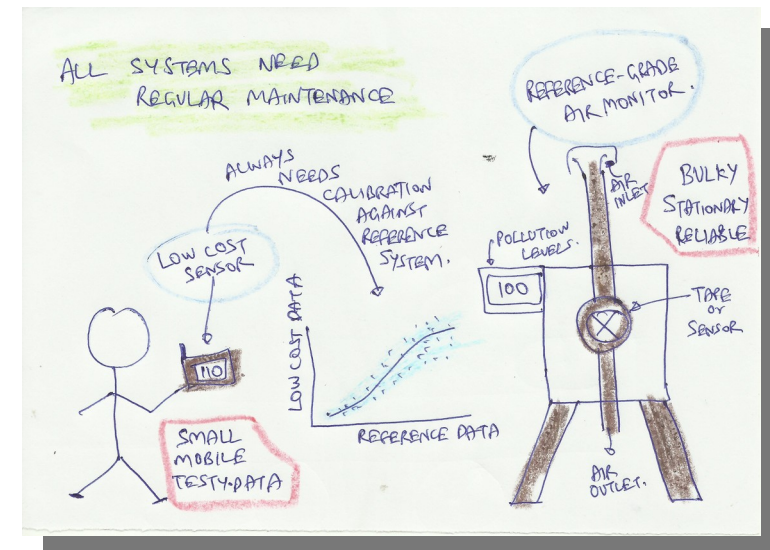 ALL SYSTEMS NEED
REGULAR MAINTENANCE
REFERENCE-GRADE
AIR MONITOR.
ALWAYS
NEEDS
CALIBRATION
AGAINST
REFERENCE
SYSTEM.
AIR
INLET
BULKY
STATIONARY
RELIABLE
LOW COST
SENSOR
POLLUTION
LEVELS.
100
TAPE
or
SENSOR
110
LOW COST DATA
REFERENCE DATA
SMALL
MOBILE
TESTY.DATA
AIR
OUTLET.